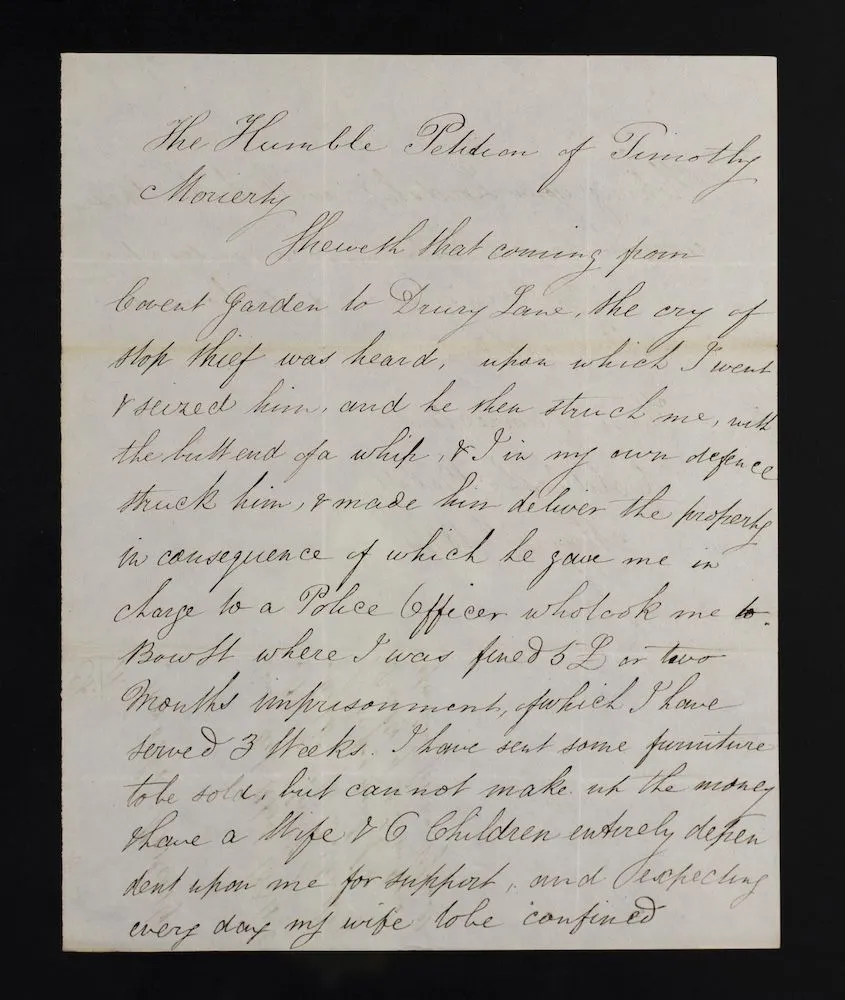 The Humble Petition of Timothy
Morierty
Sheweth that coming from
Covent Garden to Drury Lane, the cry of
stop thief was heard, upon which I went
& seized him, and he then struck me, with
the butt end of a whip, & I in my own defence
struck him, & made him deliver the property
in consequence of which he gave me in
charge to a Police Officer who took me to
Bow St where I was fined 5 £ or two
Months imprisonment, of which I have
served 3 Weeks. I have sent some furniture
to be sold, but cannot make up the money
& have a Wife & 6 Children entirely depen
dent upon me for support, and expecting
every day my wife to be confined